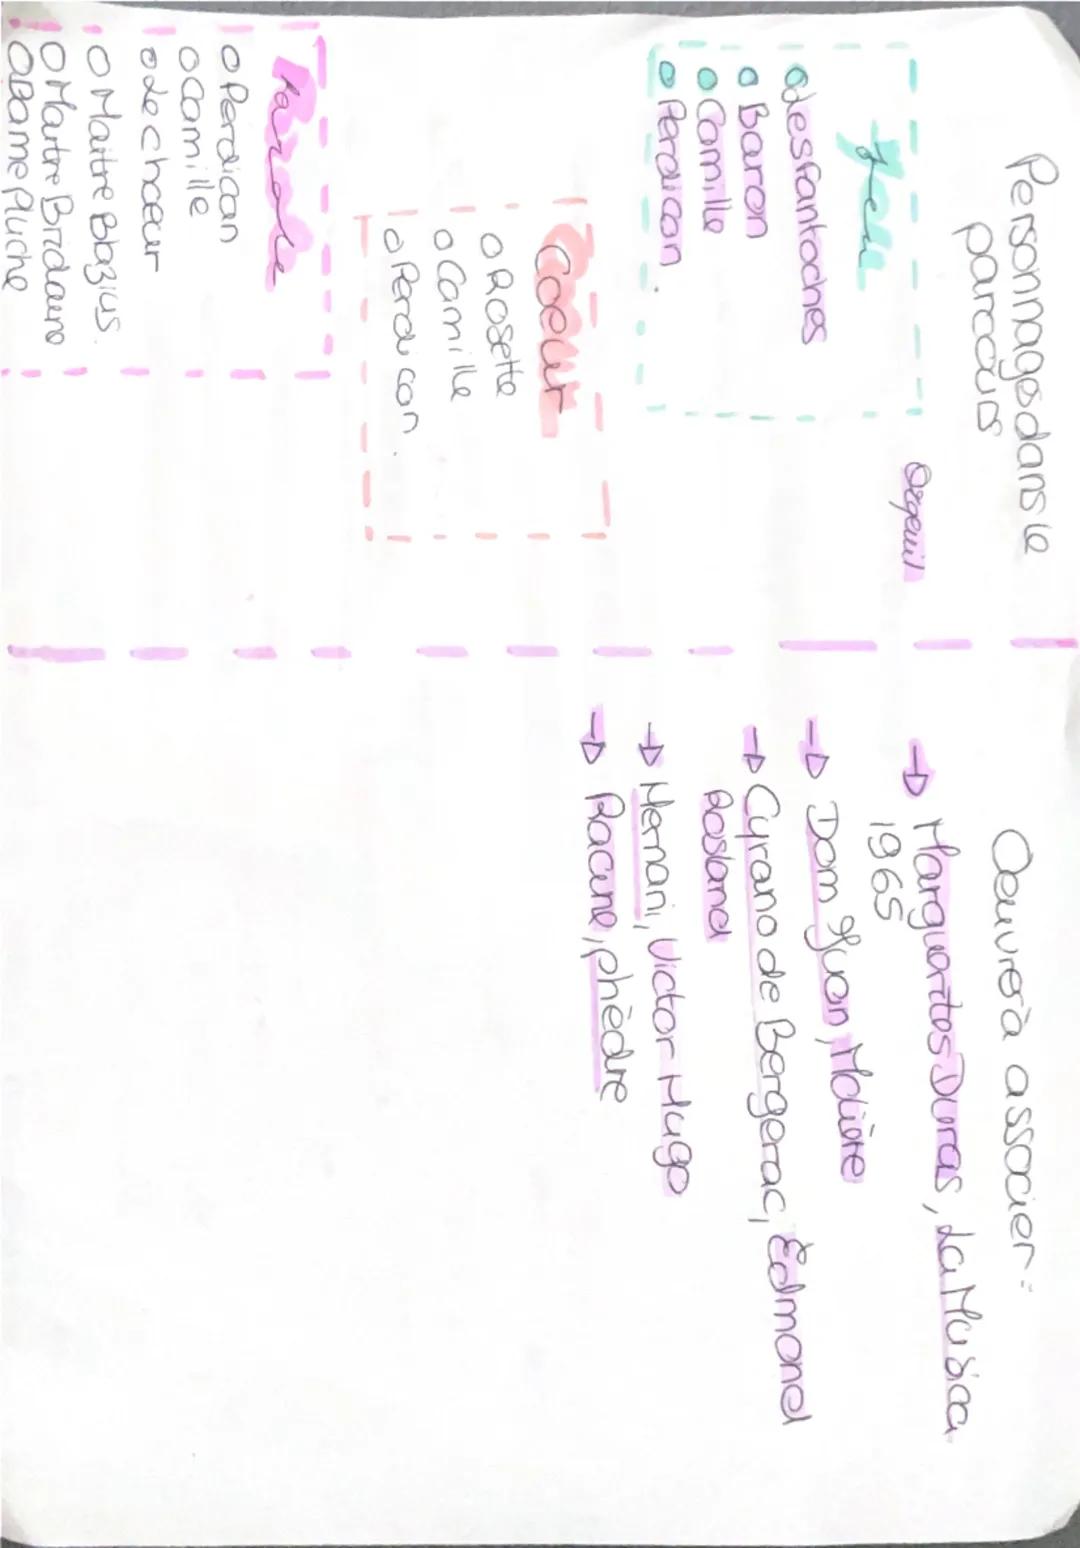 Personnages dans le
parcours
Orgeuil
Jeu
les fantoches
Baron
Camille
Perdican.
Coeur
Rosette
Camille
Perdican.
Parole
Perdican
Camille
Le choeur
Maitre Blazius.
Maitre Bridaine
Dame Pluche
Oeuvres à associer :
→ Marguerites Duras, La Musica
1965
→ Dom Juan, Molière
→ Cyrano de Bergerac, Edmond
Rostand
→ Hernani, Victor Hugo
→ Racine, phèdre